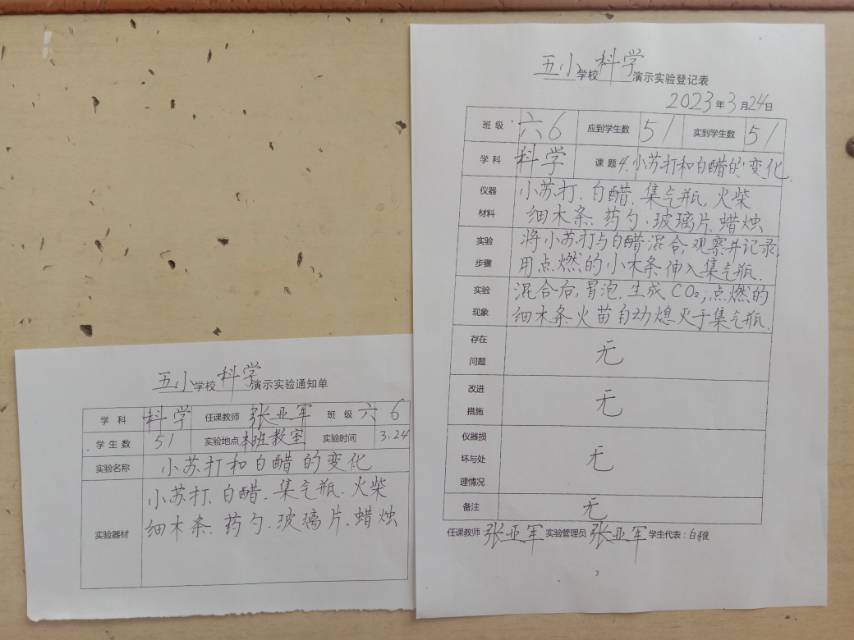 五小学校科学演示实验通知单
学科 科学 任课教师 张亚军 班级 六6
学生数 51 实验地点 本班教室 实验时间 3.24
实验名称 小苏打和白醋的变化
实验器材 小苏打、白醋、集气瓶、火柴
细木条、药勺、玻璃片、蜡烛
五小学校科学演示实验登记表
2023年3月24日
班级 六6 应到学生数 51 实到学生数 51
学科 科学 课题 4.小苏打和白醋的变化
仪器材料 小苏打、白醋、集气瓶、火柴
细木条、药勺、玻璃片、蜡烛
实验步骤 将小苏打与白醋混合,观察并记录,
用点燃的小木条伸入集气瓶.
实验现象 混合后,冒泡,生成CO₂,点燃的
细木条火苗自动熄灭于集气瓶.
存在问题 无
改进措施 无
仪器损坏与处理情况 无
备注 无
任课教师 张亚军 实验管理员 张亚军 学生代表:白